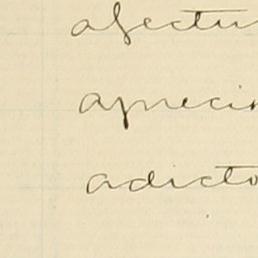 afectu
apreci
adicto